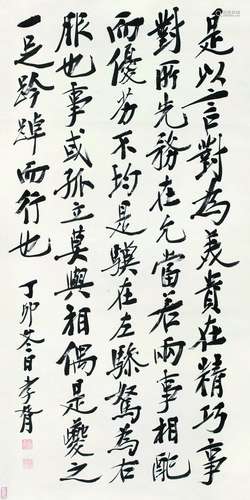 是以言對為美貴在精巧事
對所先務在允當若兩事相配
而優劣不均是驥在左驂駑為右
服也事或孤立莫與相偶是夔之
一足趻踔而行也
丁卯日李